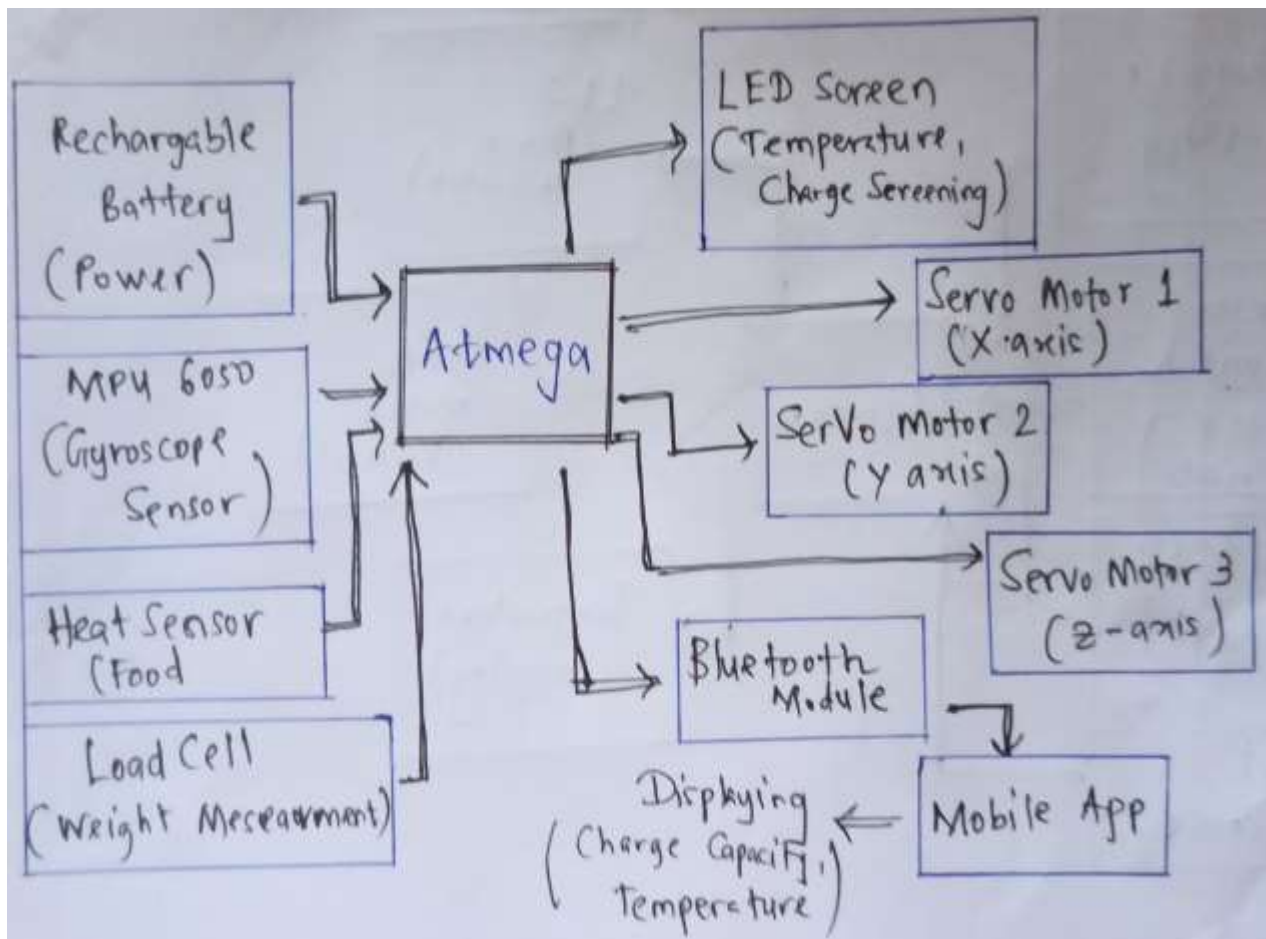 Rechargable
Battery
(Power)
MPU 6050
(Gyroscope
Sensor)
Heat Sensor
(Food
Load Cell
(Weight Meseaurment)
Atmega
LED Screen
(Temperature,
Charge Screening)
Servo Motor 1
(X-axis)
Servo Motor 2
(Y axis)
Servo Motor 3
(Z-axis)
Bluetooth
Module
Mobile App
Displying
(Charge Capacity,
Temperature)